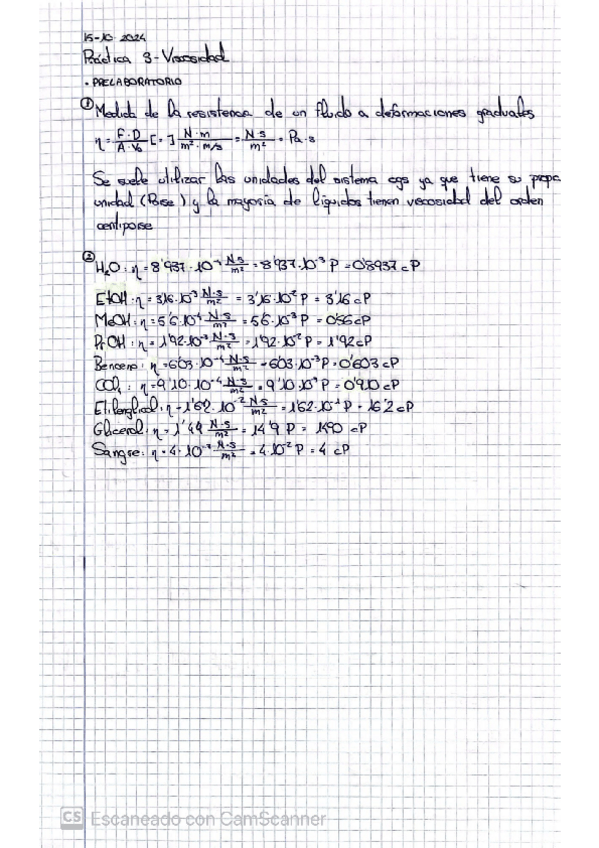 15-10-2024
Práctica 3-Viscosidad
• PRELABORATORIO
① Medida de la resistencia de un fluido a deformaciones graduales
η = F·D / A·V₀ [=] N·m / m²·m/s = N·s / m² = Pa·s
Se suele utilizar las unidades del sistema cgs ya que tiene su propia
unidad (Poise) y la mayoría de líquidos tienen viscosidad del orden
centipoise
② H₂O: η = 8'937·10⁻⁴ N·s/m² = 8'937·10⁻³ P = 0'8937 cP
EtOH: η = 3'16·10⁻³ N·s/m² = 3'16·10⁻² P = 3'16 cP
MeOH: η = 5'6·10⁻⁴ N·s/m² = 5'6·10⁻³ P = 0'56 cP
PrOH: η = 1'92·10⁻³ N·s/m² = 1'92·10⁻² P = 1'92 cP
Benceno: η = 6'03·10⁻⁴ N·s/m² = 6'03·10⁻³ P = 0'603 cP
CCl₄: η = 9'10·10⁻⁴ N·s/m² = 9'10·10⁻³ P = 0'910 cP
Etilenglicol: η = 1'62·10⁻² N·s/m² = 1'62·10⁻¹ P = 16'2 cP
Glicerol: η = 1'49 N·s/m² = 14'9 P = 1490 cP
Sangre: η = 4·10⁻³ N·s/m² = 4·10⁻² P = 4 cP
CS Escaneado con CamScanner